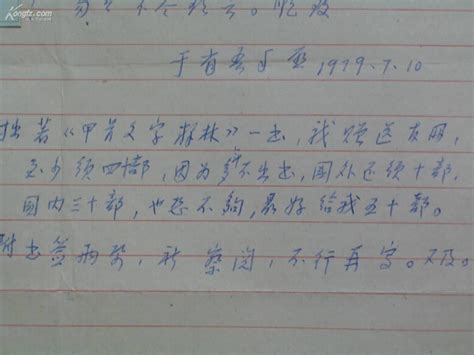 Kongfz.com
于省吾 1979.7.10
拙著《甲骨文字释林》一书,我赠送友朋,
至少须四十部,因为多年不出书,国外还须十部,
国内三十部,也恐不夠,最好给我五十部。
附书签两,祈 察阅,不行再写。又及。